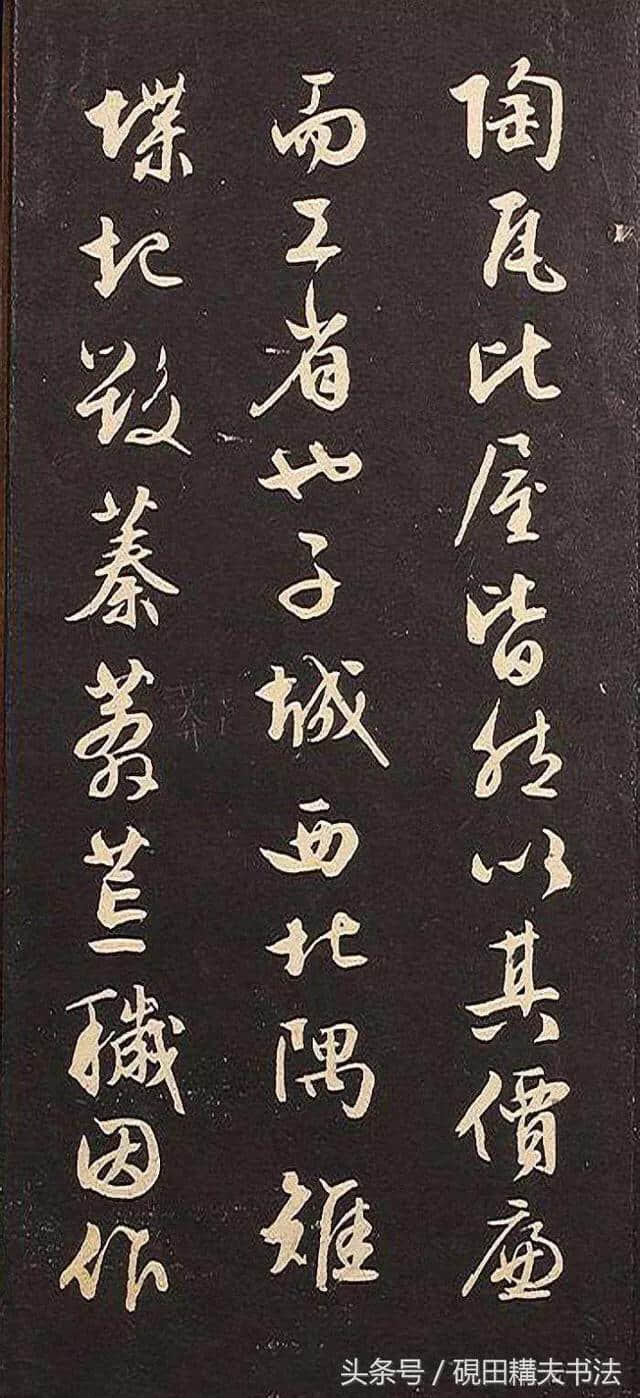 陶瓦比屋皆然以其價廉
而工省也子城西北隅雉
堞圮毀蓁莽荒穢因作
头条号 / 硯田耩夫书法